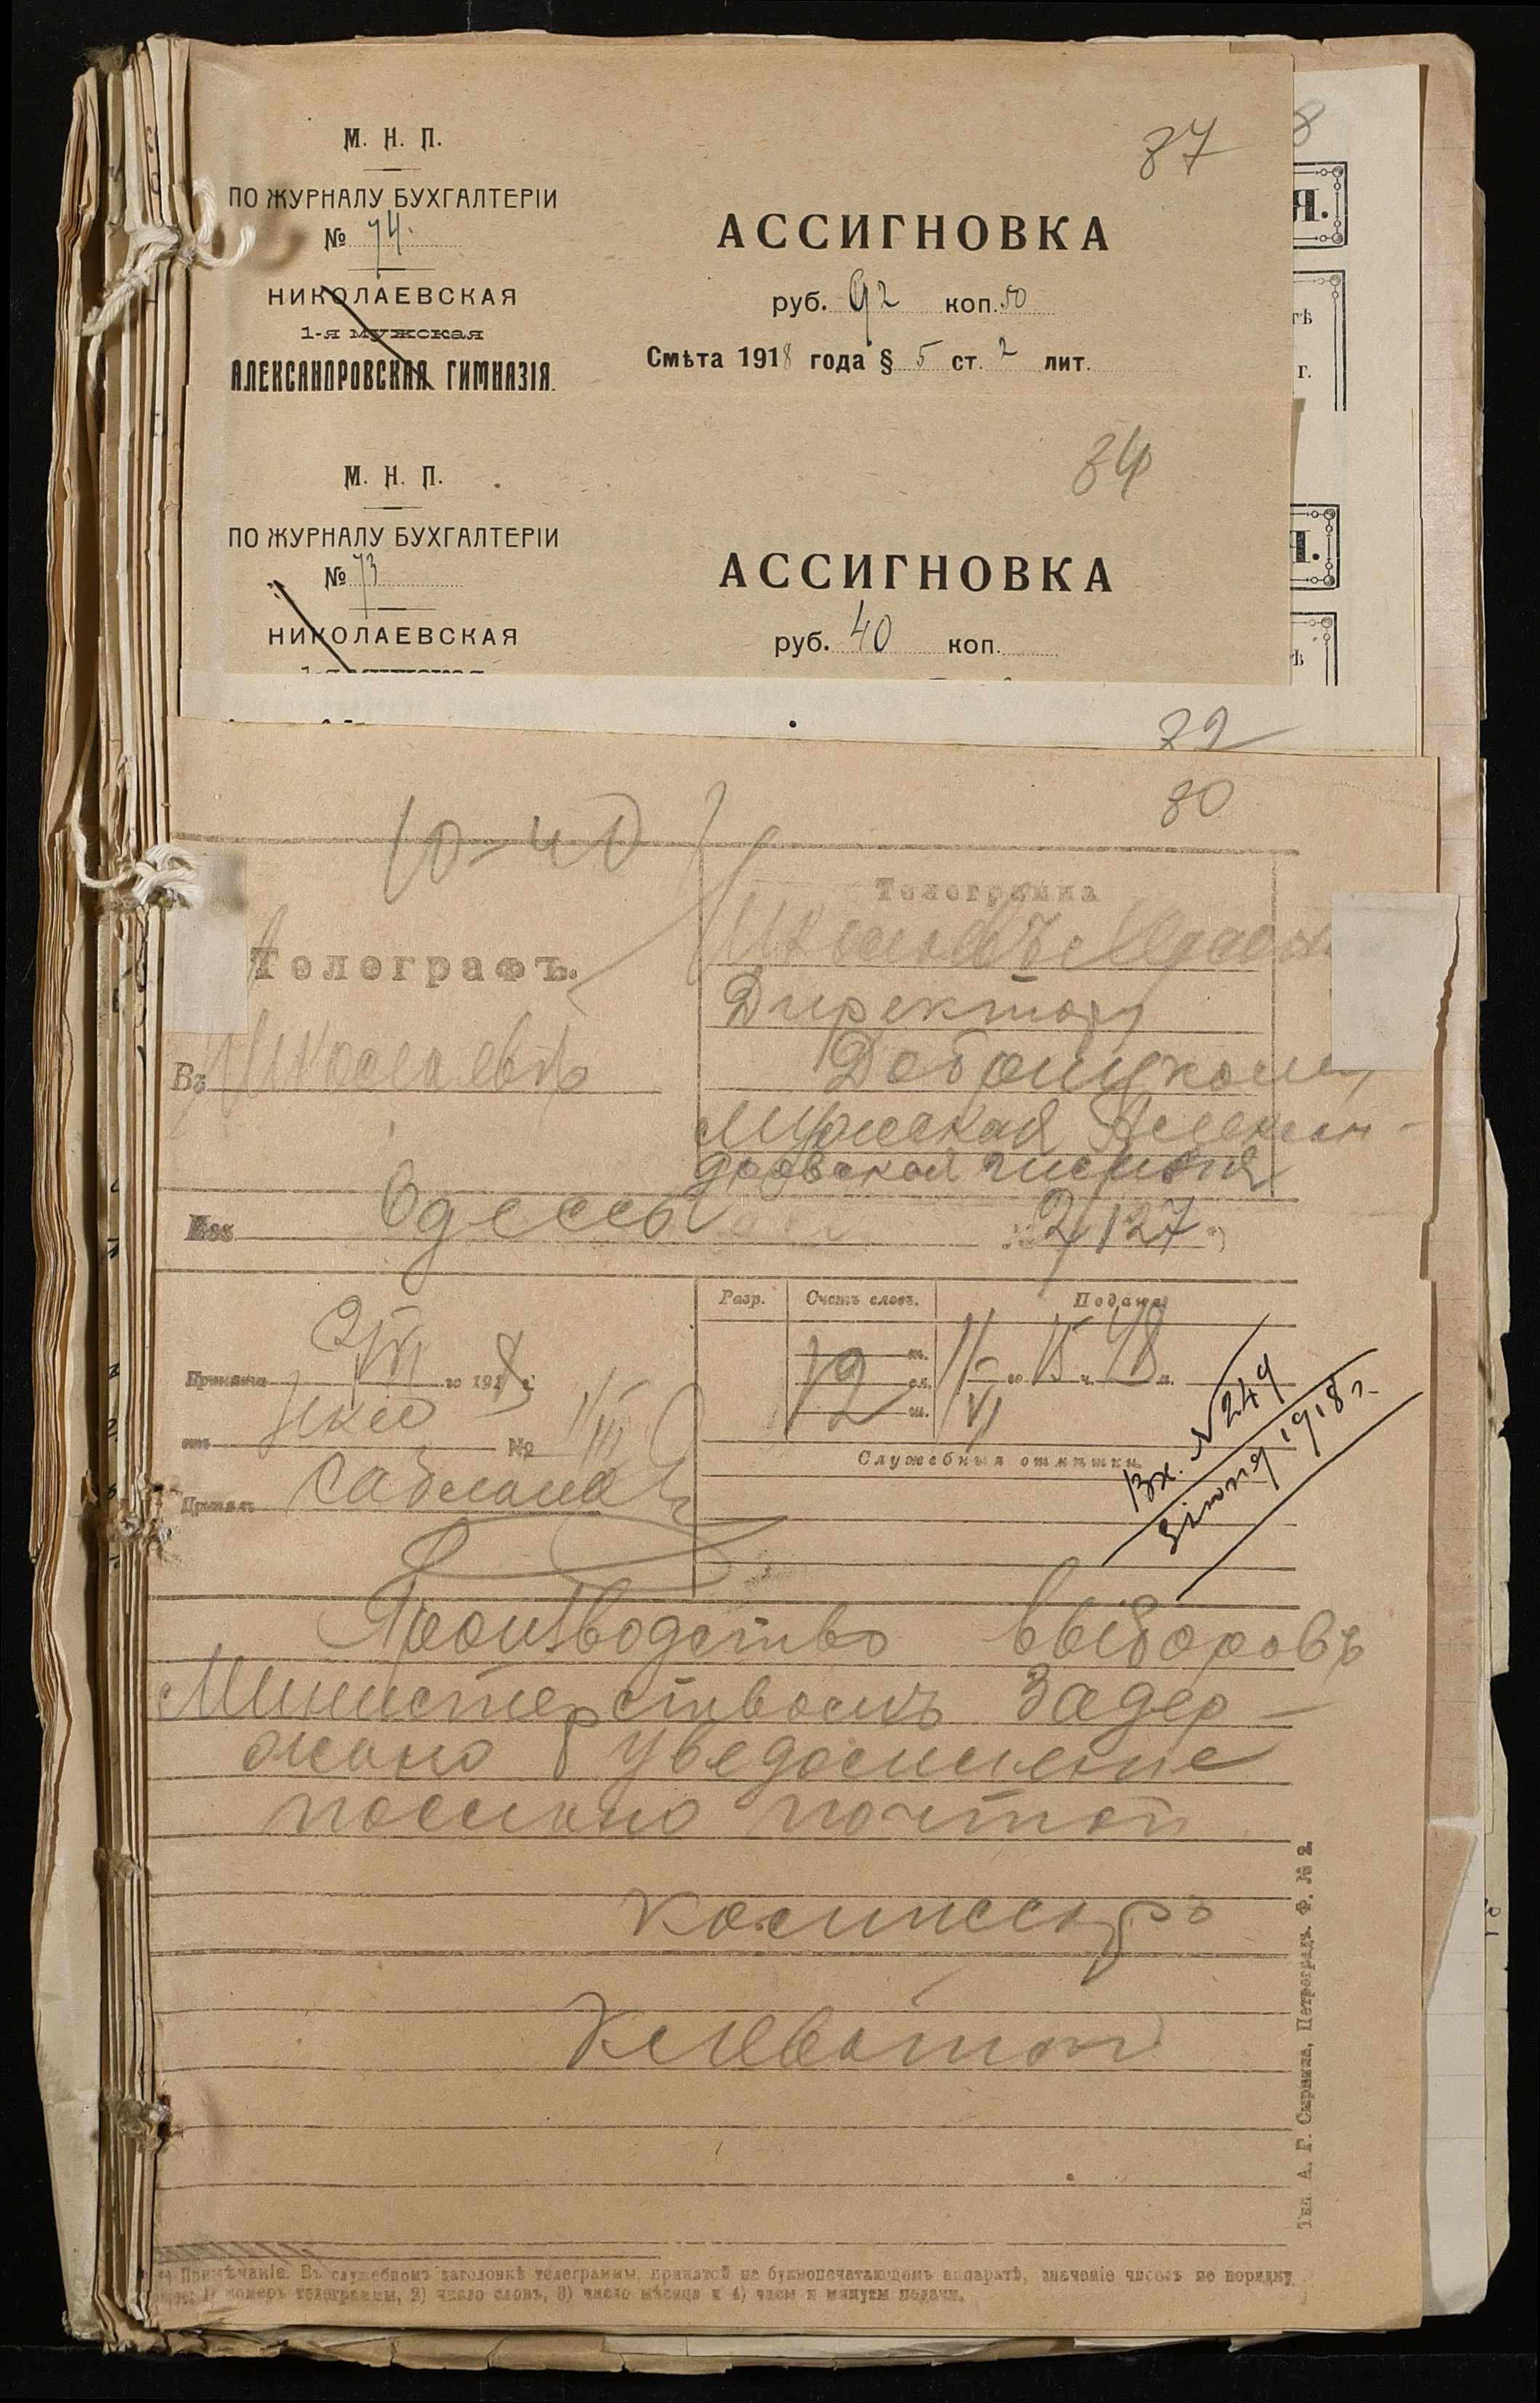 87
М. Н. П.
ПО ЖУРНАЛУ БУХГАЛТЕРІИ
№ 74.
НИКОЛАЕВСКАЯ
1-я мужская
АЛЕКСАНДРОВСКАЯ ГИМНАЗІЯ.
АССИГНОВКА
руб. 92 коп. 50
Смѣта 1918 года § 5 ст. 2 лит.
8
Я.
г.
84
М. Н. П.
ПО ЖУРНАЛУ БУХГАЛТЕРІИ
№ 73
НИКОЛАЕВСКАЯ
АССИГНОВКА
руб. 40 коп.
72
80
10-40
Телеграмма
Телеграфъ.
Директору
Въ Николаевъ
Мужская Алексан-
дровская гимназия
Изъ Одессы 2/127
Разр. Счетъ словъ. Подана
Принята 2/VI го 1918 г.
12 сл.
1/VI го 15 ч. 48 м.
отъ №
Принялъ
Служебныя отмѣтки.
Вх. №249
3 іюня 1918 г.
Производство выборовъ
Министерствомъ задер-
жано уведомление
послано почтой
комиссаръ
Тип. А. Р. Сырвина, Петроградъ. Ф. № 2.
Примѣчаніе. Въ служебномъ заголовкѣ телеграммы, принятой на буквопечатающемъ аппаратѣ, значеніе чиселъ по порядку
1) номеръ телеграммы, 2) число словъ, 3) число мѣсяца и 4) часы и минуты подачи.